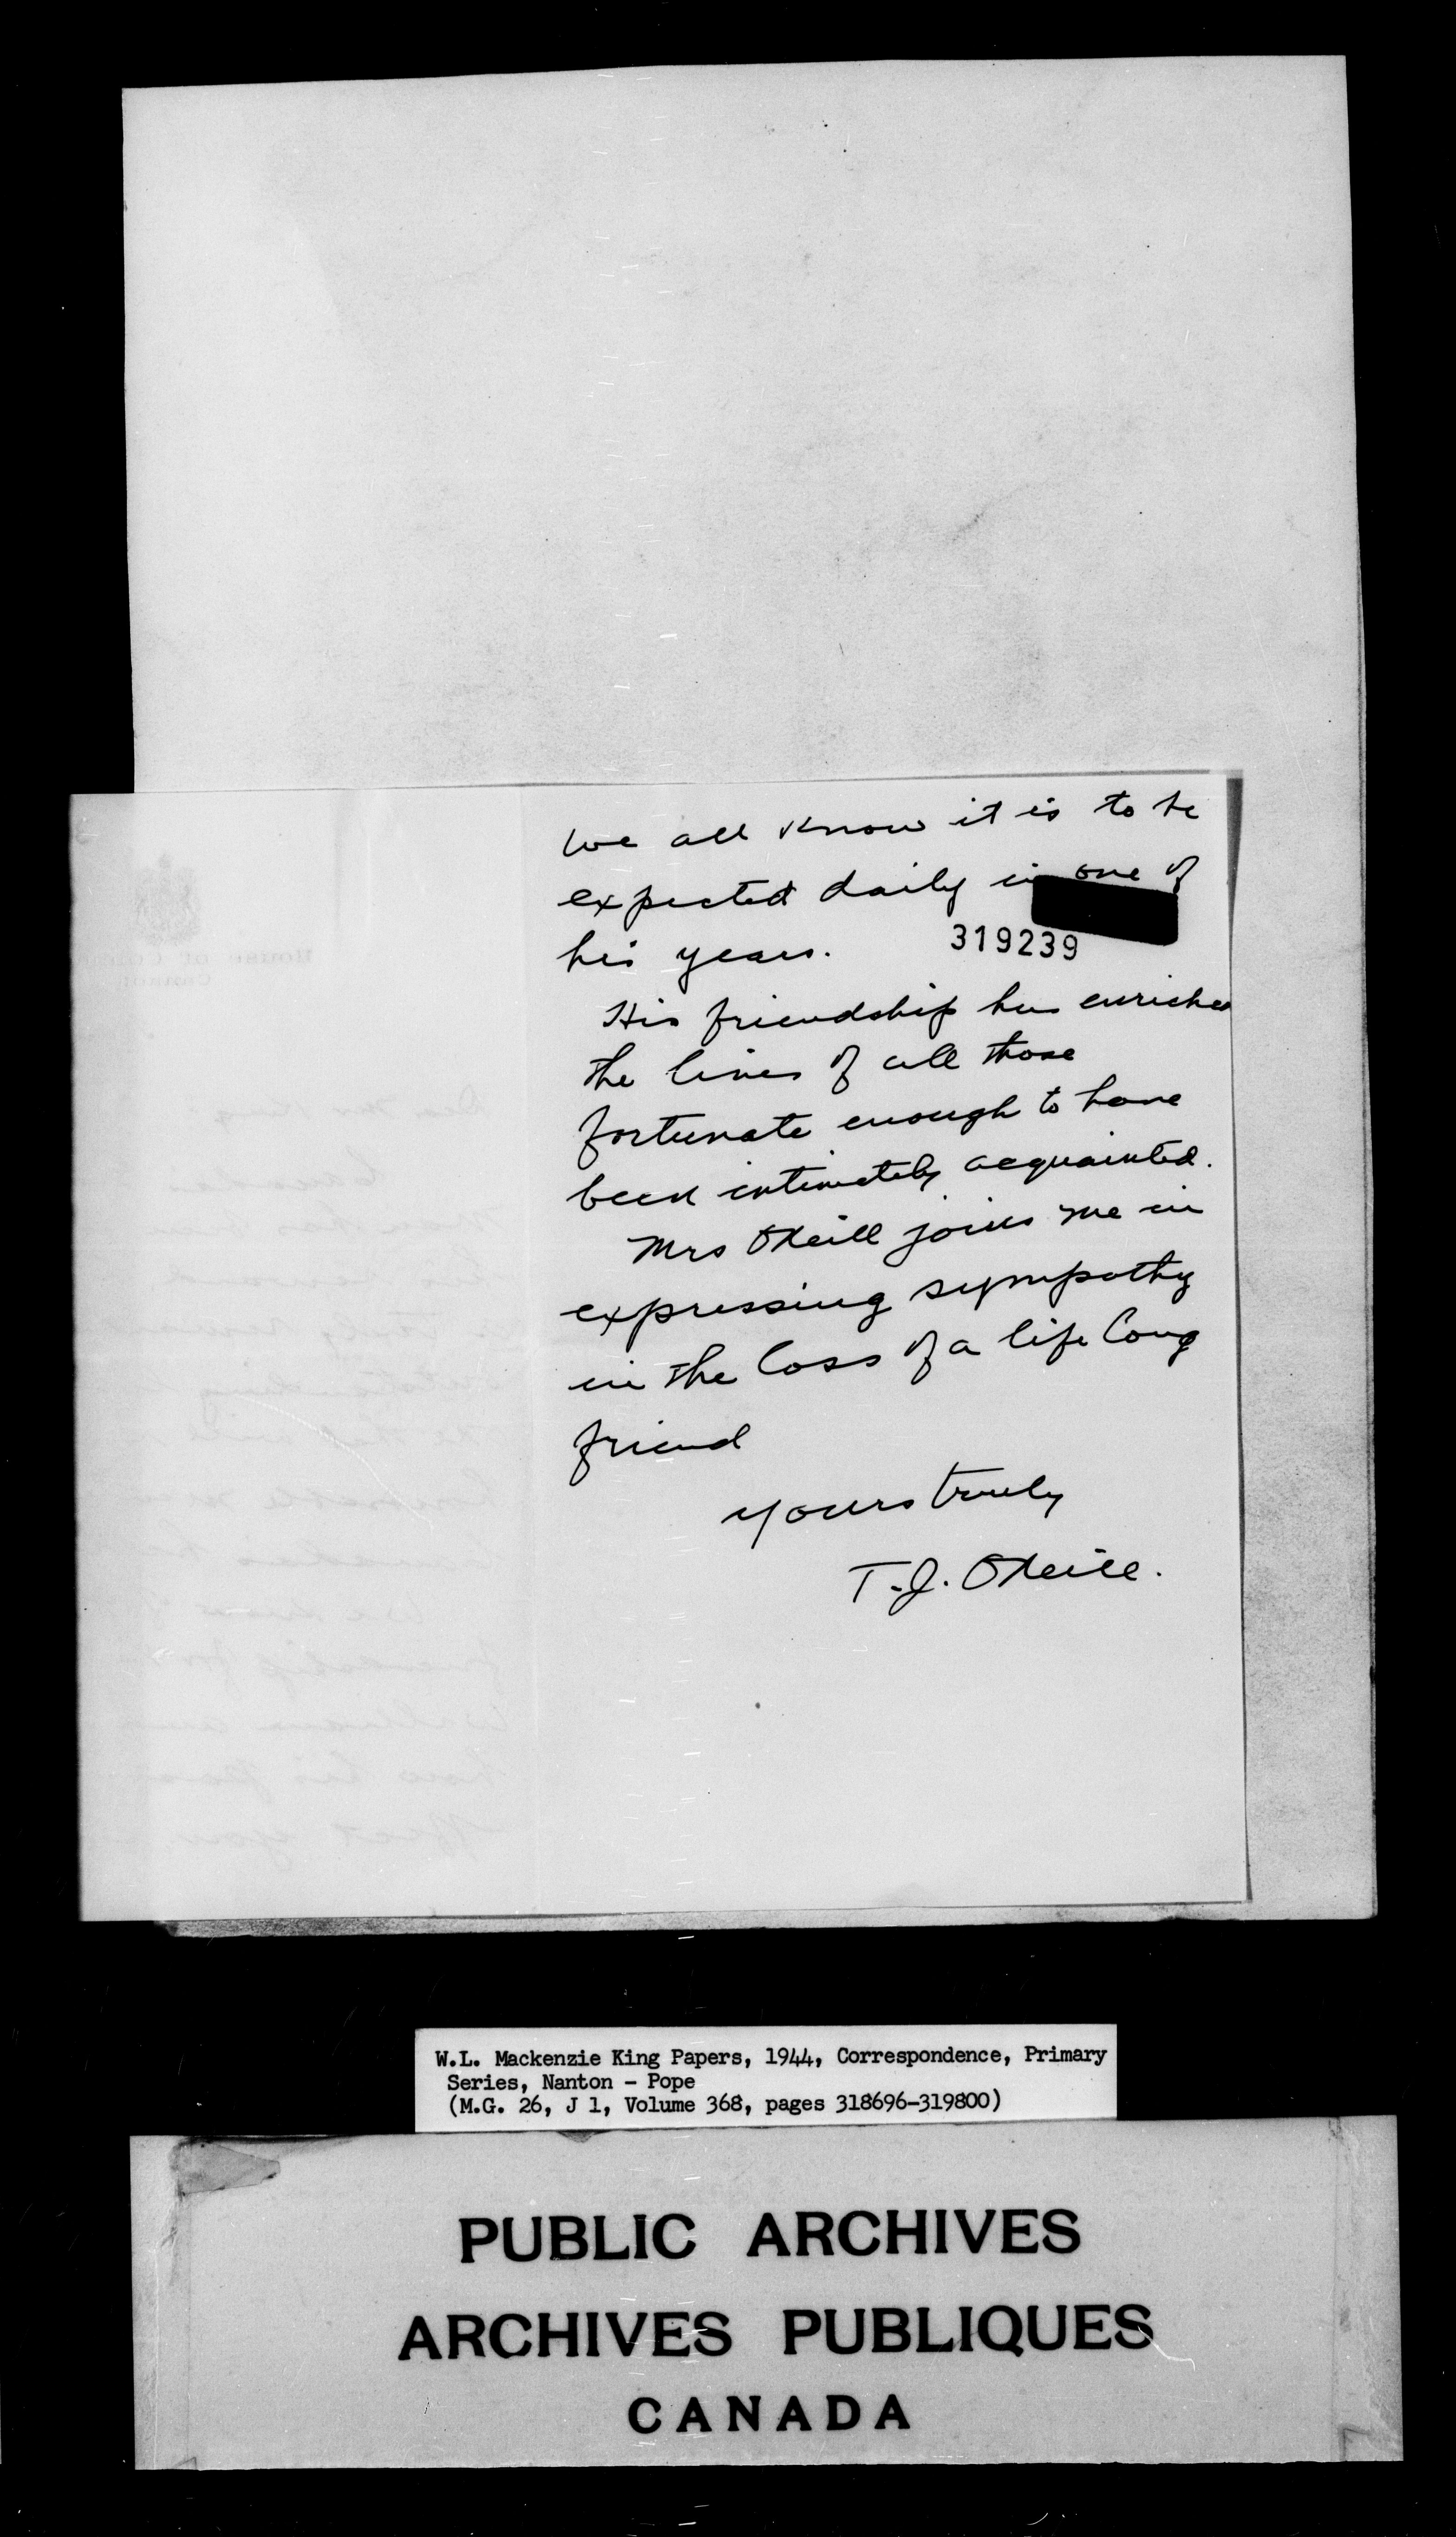 we all know it is to be
expected daily in one of
his years.
319239
His friendship has enriched
the lives of all those
fortunate enough to have
been intimately acquainted.
Mrs O'Neill joins me in
expressing sympathy
in the loss of a life long
friend
yours truly
T.J. O'Neill.
W.L. Mackenzie King Papers, 1944, Correspondence, Primary
Series, Nanton - Pope
(M.G. 26, J 1, Volume 368, pages 318696-319800)
PUBLIC ARCHIVES
ARCHIVES PUBLIQUES
CANADA